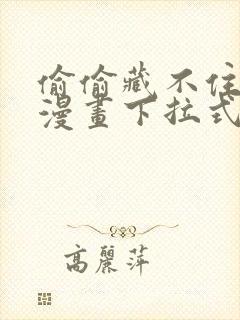 偷偷藏不住
漫畫下拉式
高麗萍